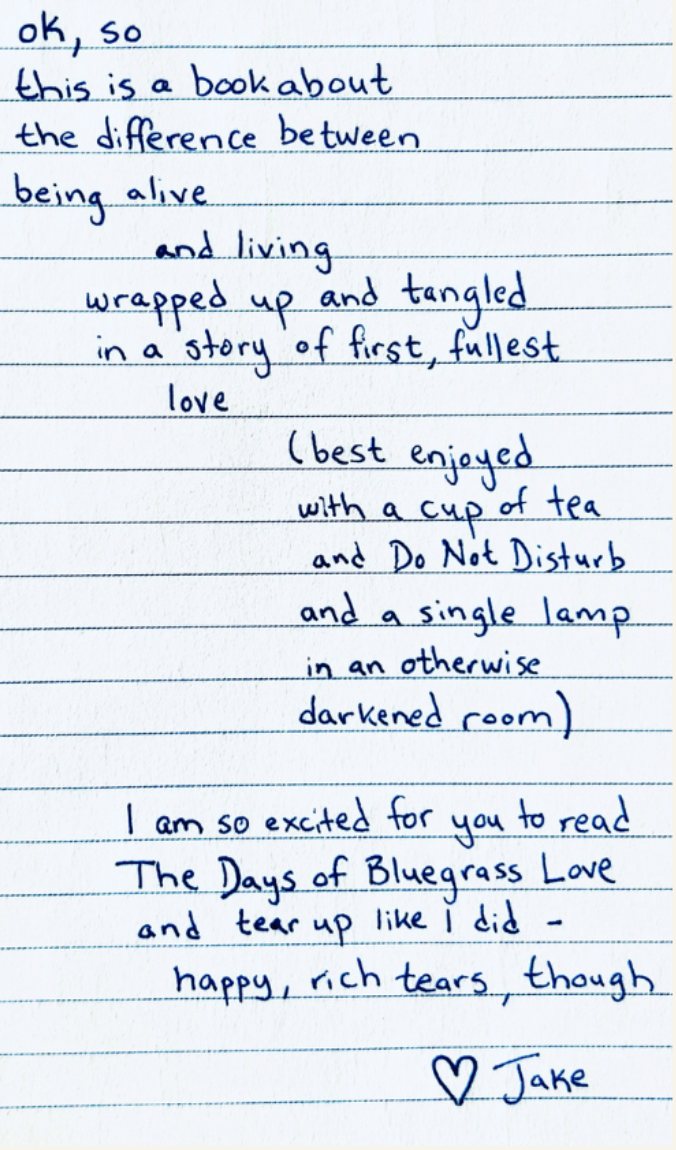 ok, so
this is a book about
the difference between
being alive
and living
wrapped up and tangled
in a story of first, fullest
love
(best enjoyed
with a cup of tea
and Do Not Disturb
and a single lamp
in an otherwise
darkened room)
I am so excited for you to read
The Days of Bluegrass Love
and tear up like I did -
happy, rich tears, though
♡ Jake